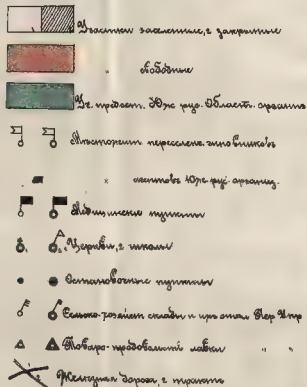 Участки заселенные, г закрытые
" свободные
Уч. предост. Юж рус. Област. организ
Мѣстопреб. переселенч. чиновниковъ
" агентовъ Юж. рус. организ.
Медицинскіе пункты
Церкви, г школы
Остановочные пункты
Сельско-хозяйст склады и
Товаро-продовольст лавки " "
Желѣзная дорога, г тракты